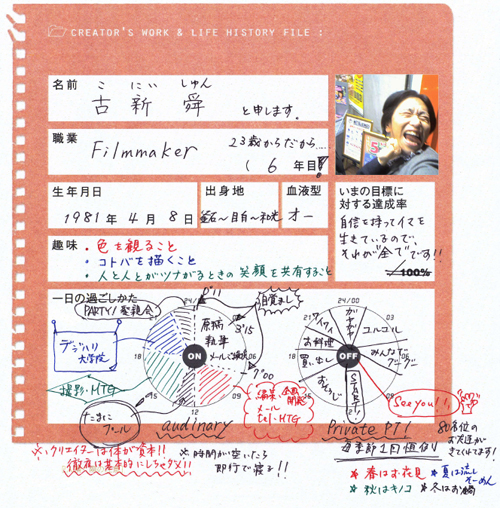 CREATOR'S WORK & LIFE HISTORY FILE :
名前
こ にい しゅん
古 新 舜 と申します.
職業
Filmmaker
23歳からだから....
( 6 年目!
生年月日
1981 年 4 月 8 日
出身地
血液型
オー
いまの目標に
対する達成率
自信を持ってイマを
生きているので、
それが全てです!!
100%
趣味
・色を観ること
・コトバを描くこと
・人と人とがツナがるときの笑顔を共有すること
一日の過ごしかた
PARTY! 聖親会
24/00
0'11
目覚まし
3'15
原稿
執筆
メール
7'00
デジハリ
大学院
21
03
18
06
15
09
12
ON
撮影・MTG
メール
tel・MTG
たまに
プール
24/00
21
03
18
06
15
09
12
OFF
ワイワイ
ガヤガヤ
ゴルゴル
お料理
買い出し
みんなで
グーグー
START!
See you!!
audinary
Private PT!
毎季節1月恒例
80名位の
お友達が
きてくれてます!
※クリエイターは体が資本!!
徹夜は基本的にしちゃダメ!!
※時間が空いたら
即行で寝る!!
★春はお花見
★夏は流しそーめん
★秋はキノコ
★冬はお鍋